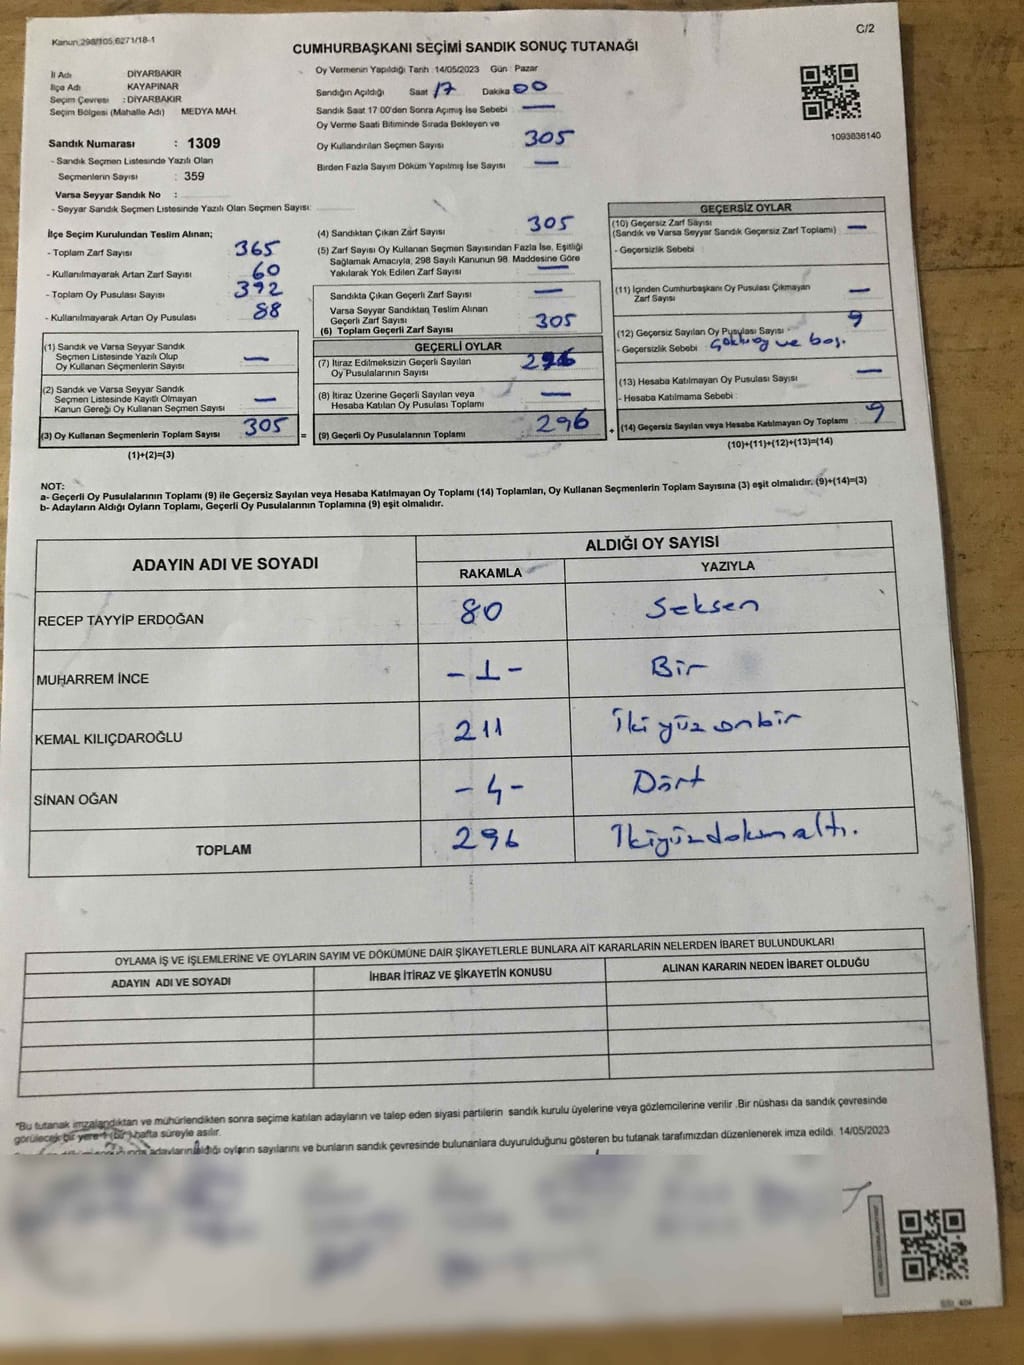 Kanun,298/105,6271/18-1
C/2
CUMHURBAŞKANI SEÇİMİ SANDIK SONUÇ TUTANAĞI
İl Adı DİYARBAKIR
İlçe Adı KAYAPINAR
Seçim Çevresi : DİYARBAKIR
Seçim Bölgesi (Mahalle Adı) MEDYA MAH.
Sandık Numarası : 1309
- Sandık Seçmen Listesinde Yazılı Olan
Seçmenlerin Sayısı : 359
Varsa Seyyar Sandık No :
- Seyyar Sandık Seçmen Listesinde Yazılı Olan Seçmen Sayısı:
Oy Vermenin Yapıldığı Tarih :14/05/2023 Gün : Pazar
Sandığın Açıldığı Saat 17 Dakika 00
Sandık Saat 17:00'den Sonra Açımış İse Sebebi —
Oy Verme Saati Bitiminde Sırada Bekleyen ve
Oy Kullandırılan Seçmen Sayısı 305
Birden Fazla Sayım Döküm Yapılmış İse Sayısı —
1093838140
İlçe Seçim Kurulundan Teslim Alınan;
- Toplam Zarf Sayısı 365
- Kullanılmayarak Artan Zarf Sayısı 60
- Toplam Oy Pusulası Sayısı 392
- Kullanılmayarak Artan Oy Pusulası 88
(1) Sandık ve Varsa Seyyar Sandık
Seçmen Listesinde Yazılı Olup
Oy Kullanan Seçmenlerin Sayısı —
(2) Sandık ve Varsa Seyyar Sandık
Seçmen Listesinde Kayıtlı Olmayan
Kanun Gereği Oy Kullanan Seçmen Sayısı —
(3) Oy Kullanan Seçmenlerin Toplam Sayısı 305 =
(1)+(2)=(3)
(4) Sandıktan Çıkan Zarf Sayısı 305
(5) Zarf Sayısı Oy Kullanan Seçmen Sayısından Fazla İse, Eşitliği
Sağlamak Amacıyla, 298 Sayılı Kanunun 98. Maddesine Göre
Yakılarak Yok Edilen Zarf Sayısı —
Sandıkta Çıkan Geçerli Zarf Sayısı —
Varsa Seyyar Sandıktan Teslim Alınan
Geçerli Zarf Sayısı
(6) Toplam Geçerli Zarf Sayısı 305
GEÇERLİ OYLAR
(7) İtiraz Edilmeksizin Geçerli Sayılan
Oy Pusulalarının Sayısı 296
(8) İtiraz Üzerine Geçerli Sayılan veya
Hesaba Katılan Oy Pusulası Toplamı —
(9) Geçerli Oy Pusulalarının Toplamı 296 +
GEÇERSİZ OYLAR
(10) Geçersiz Zarf Sayısı
(Sandık ve Varsa Seyyar Sandık Geçersiz Zarf Toplamı) —
- Geçersizlik Sebebi
(11) İçinden Cumhurbaşkanı Oy Pusulası Çıkmayan
Zarf Sayısı —
(12) Geçersiz Sayılan Oy Pusulası Sayısı 9
- Geçersizlik Sebebi ve boş.
(13) Hesaba Katılmayan Oy Pusulası Sayısı —
- Hesaba Katılmama Sebebi :
(14) Geçersiz Sayılan veya Hesaba Katılmayan Oy Toplamı 9
(10)+(11)+(12)+(13)=(14)
NOT:
a- Geçerli Oy Pusulalarının Toplamı (9) ile Geçersiz Sayılan veya Hesaba Katılmayan Oy Toplamı (14) Toplamları, Oy Kullanan Seçmenlerin Toplam Sayısına (3) eşit olmalıdır. (9)+(14)=(3)
b- Adayların Aldığı Oyların Toplamı, Geçerli Oy Pusulalarının Toplamına (9) eşit olmalıdır.
ADAYIN ADI VE SOYADI
ALDIĞI OY SAYISI
RAKAMLA YAZIYLA
RECEP TAYYİP ERDOĞAN 80 Seksen
MUHARREM İNCE -1- Bir
KEMAL KILIÇDAROĞLU 211 İki yüz onbir
SİNAN OĞAN -4- Dört
TOPLAM 296 İkiyüzdoksanaltı.
OYLAMA İŞ VE İŞLEMLERİNE VE OYLARIN SAYIM VE DÖKÜMÜNE DAİR ŞİKAYETLERLE BUNLARA AİT KARARLARIN NELERDEN İBARET BULUNDUKLARI
ADAYIN ADI VE SOYADI İHBAR İTİRAZ VE ŞİKAYETİN KONUSU ALINAN KARARIN NEDEN İBARET OLDUĞU
*Bu tutanak imzalandıktan ve mühürlendikten sonra seçime katılan adayların ve talep eden siyasi partilerin sandık kurulu üyelerine veya gözlemcilerine verilir .Bir nüshası da sandık çevresinde
görülecek bir yere 1 (bir) hafta süreyle asılır.
adayların aldığı oyların sayılarını ve bunların sandık çevresinde bulunanlara duyurulduğunu gösteren bu tutanak tarafımızdan düzenlenerek imza edildi. 14/05/2023